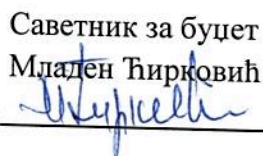 Саветник за буџет
Младен Ћирковић